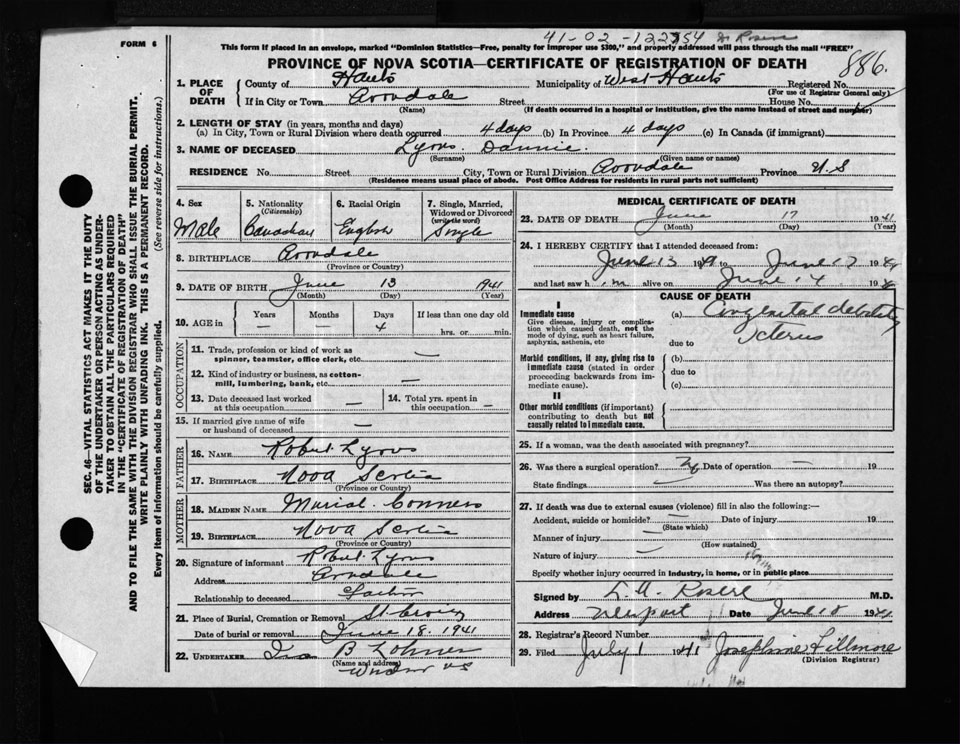 41-02-122754 Dr Rosere
FORM 6
This form if placed in an envelope, marked "Dominion Statistics—Free, penalty for improper use $300," and properly addressed will pass through the mail "FREE"
PROVINCE OF NOVA SCOTIA—CERTIFICATE OF REGISTRATION OF DEATH
886.
1. PLACE OF DEATH County of Hants Municipality of West Hants Registered No.
(For use of Registrar General only)
If in City or Town Avondale Street House No.
(Name) (If death occurred in a hospital or institution, give the name instead of street and number)
2. LENGTH OF STAY (in years, months and days)
(a) In City, Town or Rural Division where death occurred 4 days (b) In Province 4 days (c) In Canada (if immigrant)
3. NAME OF DECEASED Lyons. Dannie.
(Surname) (Given name or names)
RESIDENCE No. Street City, Town or Rural Division Avondale Province N.S
(Residence means usual place of abode. Post Office Address for residents in rural parts not sufficient)
4. Sex Male
5. Nationality (Citizenship) Canadian
6. Racial Origin English
7. Single, Married, Widowed or Divorced (write the word) Single
8. BIRTHPLACE Avondale
(Province or Country)
9. DATE OF BIRTH June 13 1941
(Month) (Day) (Year)
10. AGE in Years — Months — Days 4 If less than one day old
hrs. or min.
OCCUPATION
11. Trade, profession or kind of work as spinner, teamster, office clerk, etc. —
12. Kind of industry or business, as cotton-mill, lumbering, bank, etc. —
13. Date deceased last worked at this occupation —
14. Total yrs. spent in this occupation —
15. If married give name of wife or husband of deceased —
FATHER
16. NAME Robert Lyons
17. BIRTHPLACE Nova Scotia
(Province or Country)
MOTHER
18. MAIDEN NAME Murial. Conners
19. BIRTHPLACE Nova Scotia
(Province or Country)
20. Signature of informant Robert Lyons
Address Avondale
Relationship to deceased Father
21. Place of Burial, Cremation or Removal St. Croix
Date of burial or removal June 18. 1941
22. UNDERTAKER Ira B Lohnes
(Name and address)
Windsor NS
MEDICAL CERTIFICATE OF DEATH
23. DATE OF DEATH June 17 1941
(Month) (Day) (Year)
24. I HEREBY CERTIFY that I attended deceased from:
June 13 1941 to June 17 1941
and last saw him alive on June 14 1941
CAUSE OF DEATH
I
Immediate cause (a) Congenital debility
Give disease, injury or complication which caused death, not the mode of dying, such as heart failure, asphyxia, asthenia, etc
Icterus
due to
Morbid conditions, if any, giving rise to immediate cause (stated in order proceeding backwards from immediate cause). (b)
due to
(c)
II
Other morbid conditions (if important) contributing to death but not causally related to immediate cause.
25. If a woman, was the death associated with pregnancy?
26. Was there a surgical operation? No Date of operation — 19
State findings — Was there an autopsy?
27. If death was due to external causes (violence) fill in also the following:—
Accident, suicide or homicide? — Date of injury 19
(State which)
Manner of injury —
(How sustained)
Nature of injury —
Specify whether injury occurred in industry, in home, or in public place
Signed by M.D.
Address Newport Date June 18 1941
28. Registrar's Record Number
29. Filed July 1 1941 Josephine Fillmore
(Division Registrar)
SEC. 46—VITAL STATISTICS ACT MAKES IT THE DUTY OF THE UNDERTAKER OR PERSON ACTING AS UNDERTAKER TO OBTAIN ALL THE PARTICULARS REQUIRED IN THE "CERTIFICATE OF REGISTRATION OF DEATH"
AND TO FILE THE SAME WITH THE DIVISION REGISTRAR WHO SHALL ISSUE THE BURIAL PERMIT.
WRITE PLAINLY WITH UNFADING INK. THIS IS A PERMANENT RECORD.
Every item of information should be carefully supplied. (See reverse side for instructions.)